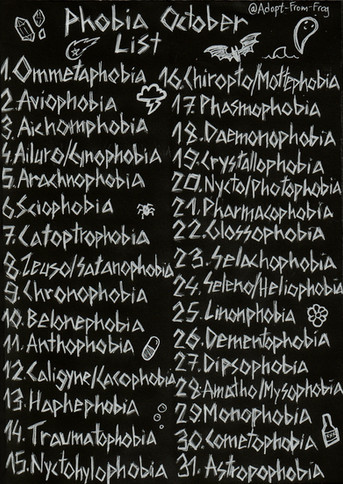 @Adopt-From-Frog
Phobia October
List
1. Ommetaphobia
2. Aviophobia
3. Aichomphobia
4. Ailuro/Cynophobia
5. Arachnophobia
6. Sciophobia
7. Catoptrophobia
8. Zeuso/Satanophobia
9. Chronophobia
10. Belonephobia
11. Anthophobia
12. Caligyne/Cacophobia
13. Haphephobia
14. Traumatophobia
15. Nyctohylophobia
16. Chiropto/Mottephobia
17. Phasmophobia
18. Daemonophobia
19. Crystallophobia
20. Nycto/Photophobia
21. Pharmacophobia
22. Glossophobia
23. Selachophobia
24. Seleno/Heliophobia
25. Linonphobia
26. Dementophobia
27. Dipsophobia
28. Amatho/Mysophobia
29. Monophobia
30. Cometophobia
31. Astropophobia